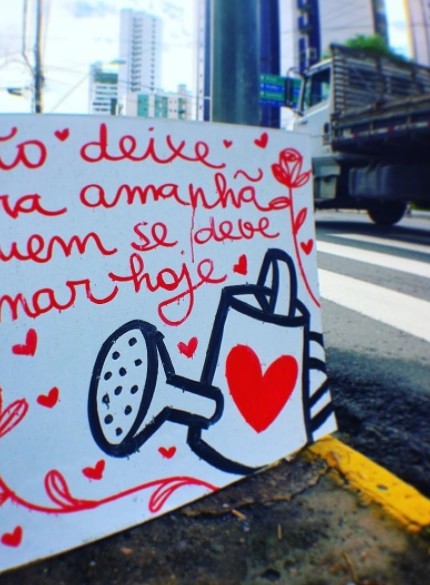 ão deixe
ra amanhã
uem se deve
mar hoje